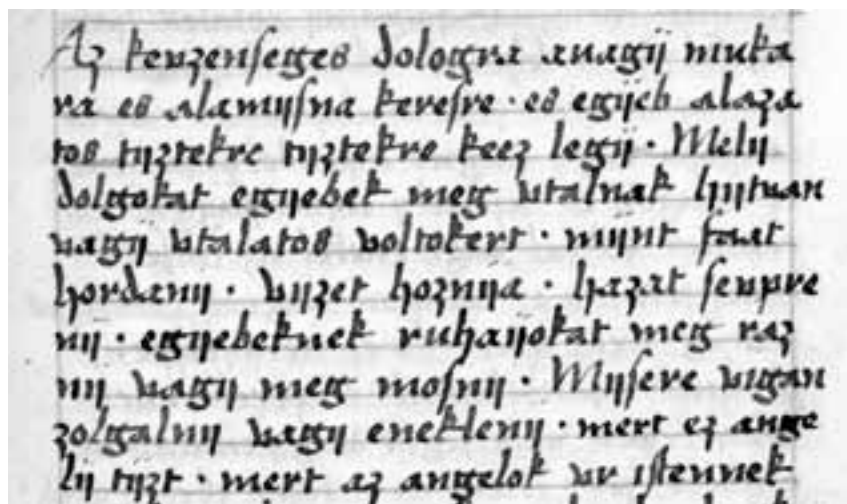 Az kewzenseges dologra auagij muka
ra es alamijsna keresre · es egijeb alaza
tos tijztekre tijztekre keez legij · Melij
dolgokat egijebek meg vtalnak hijtuan
vagij vtalatos voltokert · mijnt faat
hordanij · vijzet hoznija · hazat sewpre
nij · egijebeknek ruhaijokat meg raz
nij vagij meg mosnij · Mijsere vigan
zolgalnij vagij eneklenij · mert ez ange
lij tijzt · mert az angelok vr istennek